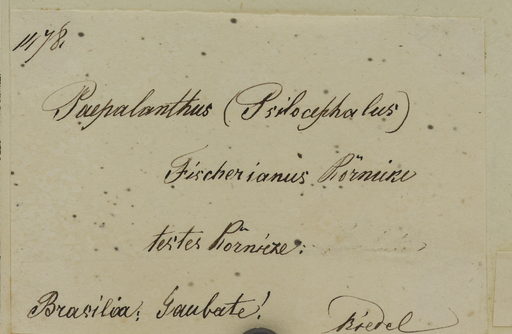 1178.
Paepalanthus (Psilocephalus)
Fischerianus Körnicke
testes Körnicke.
Brasilia: Gaubate!
Riedel